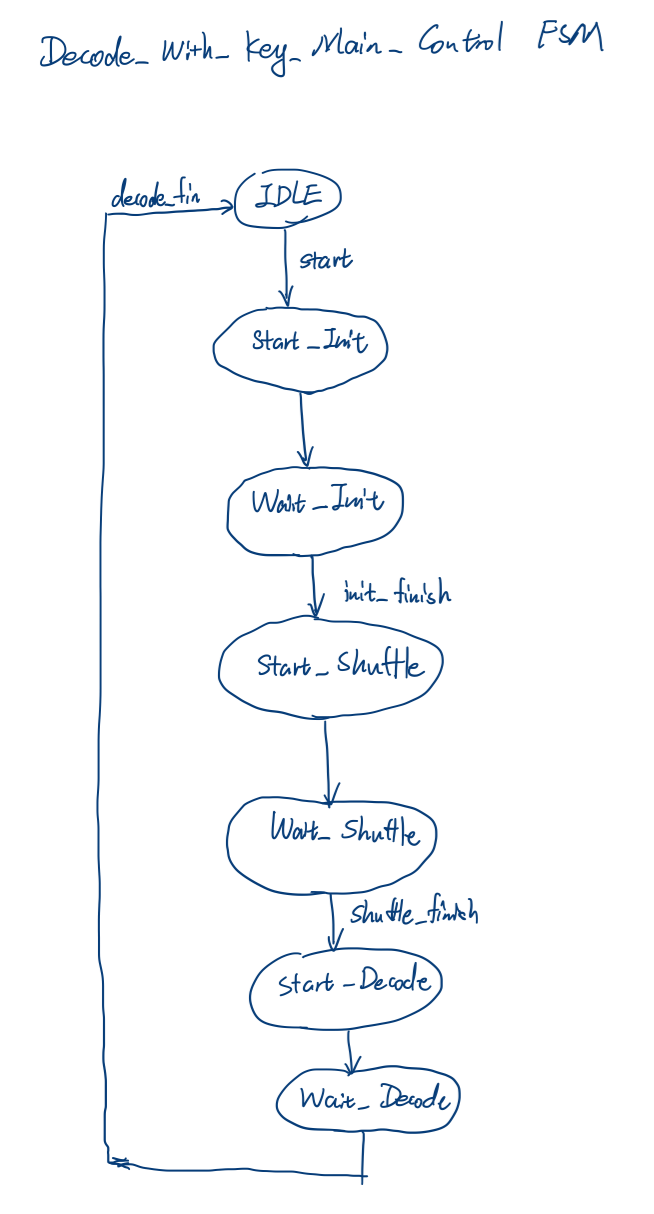 Decode_With_Key_Main_Control FSM
decode_fin
IDLE
start
Start_Init
Wait_Init
init_finish
Start_Shuffle
Wait_Shuffle
shuffle_finish
Start_Decode
Wait_Decode